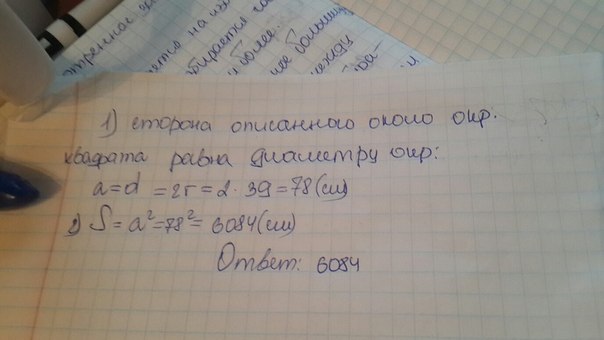 на
более.
1) сторона описанного около окр.
квадрата равна диаметру окр:
a = d = 2r = 2 · 39 = 78 (см)
2) S = a² = 78² = 6084 (см)
Ответ: 6084